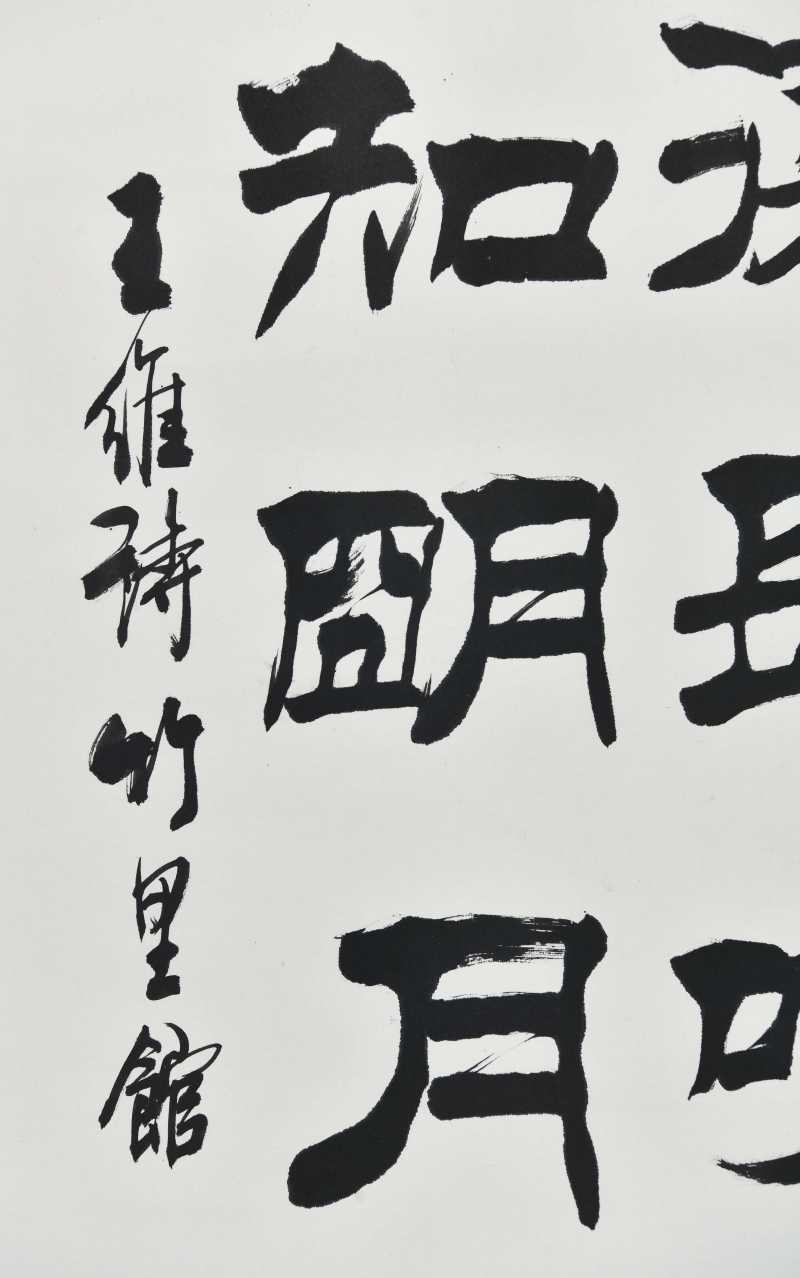 長
知朙月
王維詩竹里館